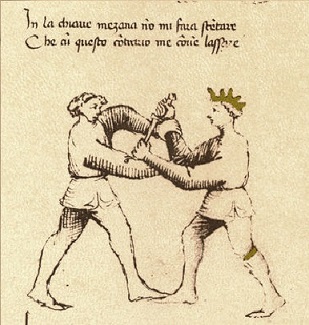 In la chiave mezana nō mi fara stētare
Che cū questo cōtrario me cōuē lassare